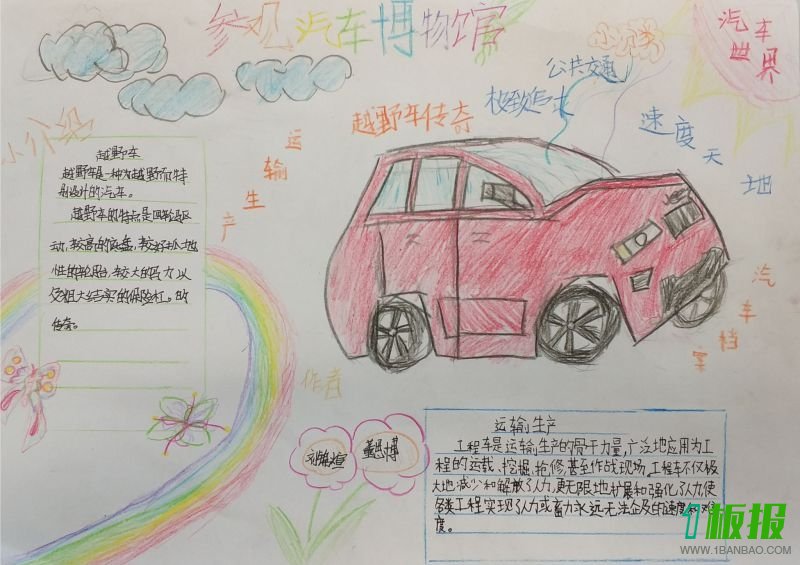 参观汽车博物馆
小贝豪
汽车
世界
公共交通
极致追求
越野车传奇
速度天地
运输生产
汽车档案
小介绍
越野车
越野车是一种为越野而特
别设计的汽车。
越野车的特点是四轮驱
动,较高的底盘,较好抓地
性的轮胎,较大的马力以
及粗大结实的保险杠。的
传奇。
作者
董思博
运输生产
工程车是运输生产的骨干力量,广泛地应用为工
程的运载、挖掘,抢修,甚至作战现场。工程车不仅极
大地减少和解放了人力,更无限地扩展和强化了人力使
各类工程实现了人力或畜力永远无法企及的速度和
度。
1板报
WWW.1BANBAO.COM